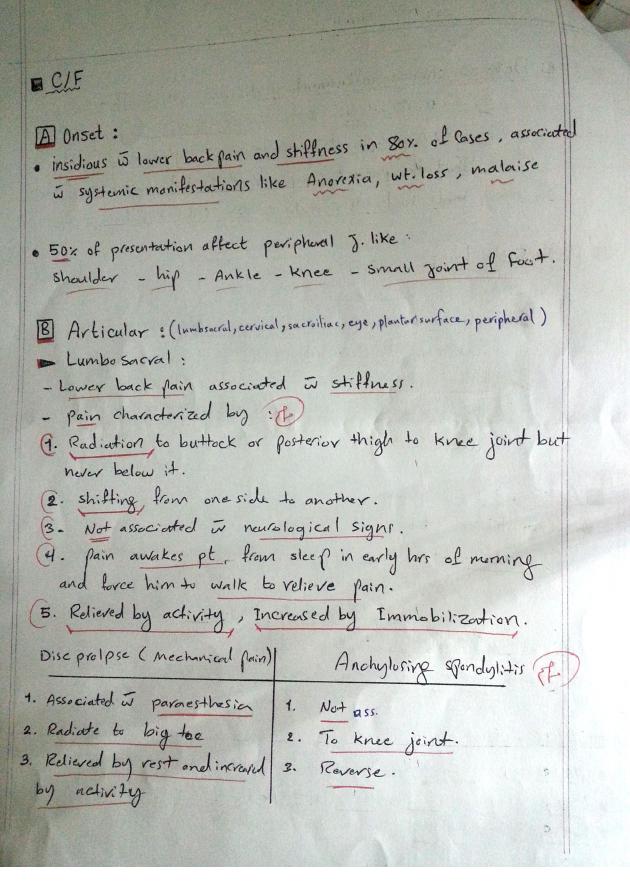 C/F
A Onset :
• insidious w̄ lower back pain and stiffness in 80% of Cases, associated
w̄ systemic manifestations like Anorexia, wt. loss, malaise
• 50% of presentation affect peripheral J. like :
shoulder - hip - Ankle - Knee - small joint of foot.
B Articular : (lumbsacral, cervical, sacroiliac, eye, plantar surface, peripheral)
► Lumbosacral :
- Lower back pain associated w̄ stiffness.
- Pain characterized by :
1. Radiation to buttock or posterior thigh to knee joint but
never below it.
2. shifting from one side to another.
3- Not associated w̄ neurological signs.
4. Pain awakes pt. from sleep in early hrs of morning
and force him to walk to relieve pain.
5. Relieved by activity, Increased by Immobilization.
Disc prolpse (Mechanical pain)
1. Associated w̄ paraesthesia
2. Radiate to big toe
3. Relieved by rest and increased
by activity
Anchylosing spondylitis
1. Not ass.
2. To knee joint.
3. Reverse.